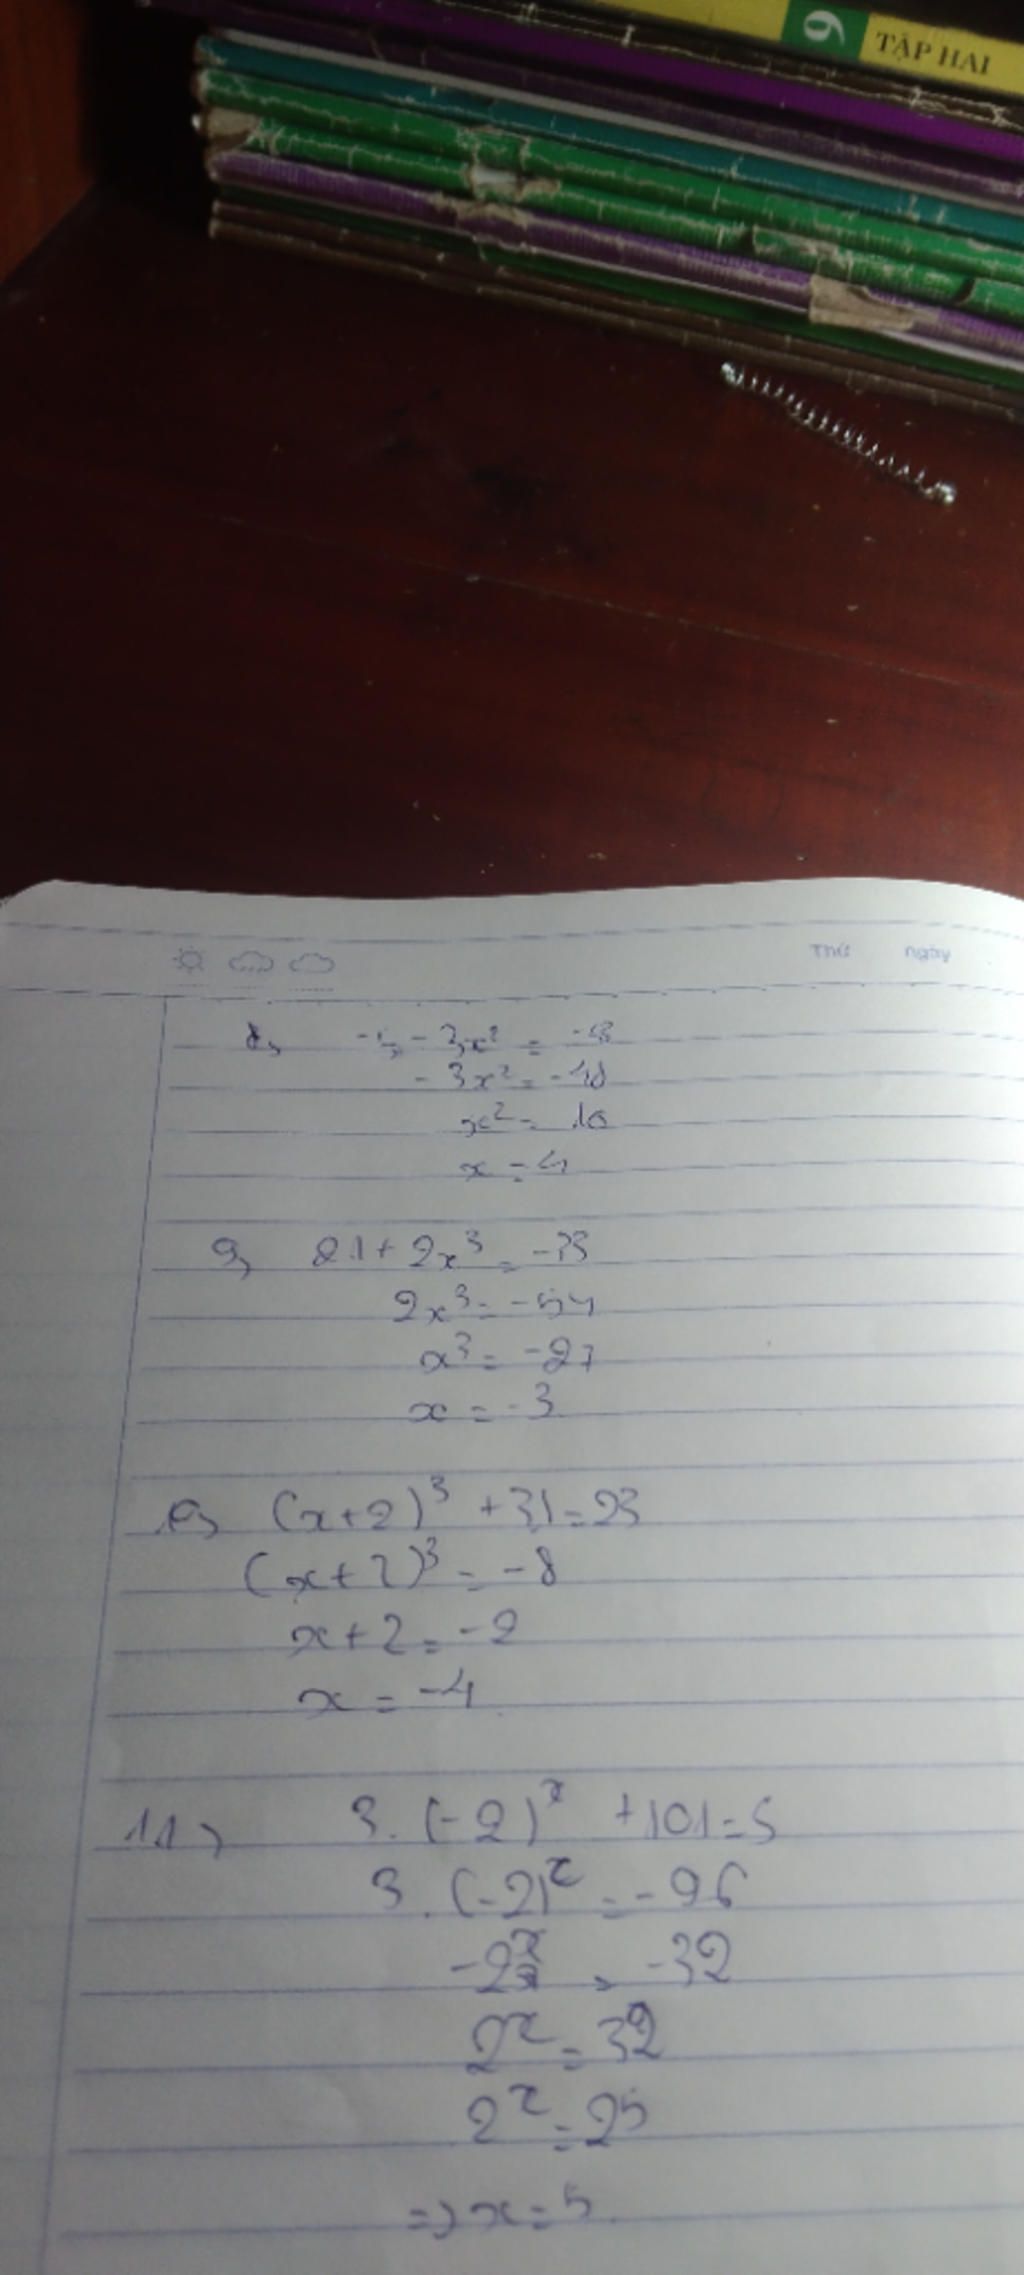 6 TẬP HAI
Thứ ngày
- 3x² = -48
x² = 16
x = 4
9, 21 + 2x³ = -33
2x³ = -54
x³ = -27
x = -3
(x+2)³ + 31 = 23
(x+2)³ = -8
x+2 = -2
x = -4
11, 3. (-2)ˣ + 101 = 5
3. (-2)ˣ = -96
-2ˣ = -32
2ˣ = 32
2ˣ = 2⁵
=> x = 5.